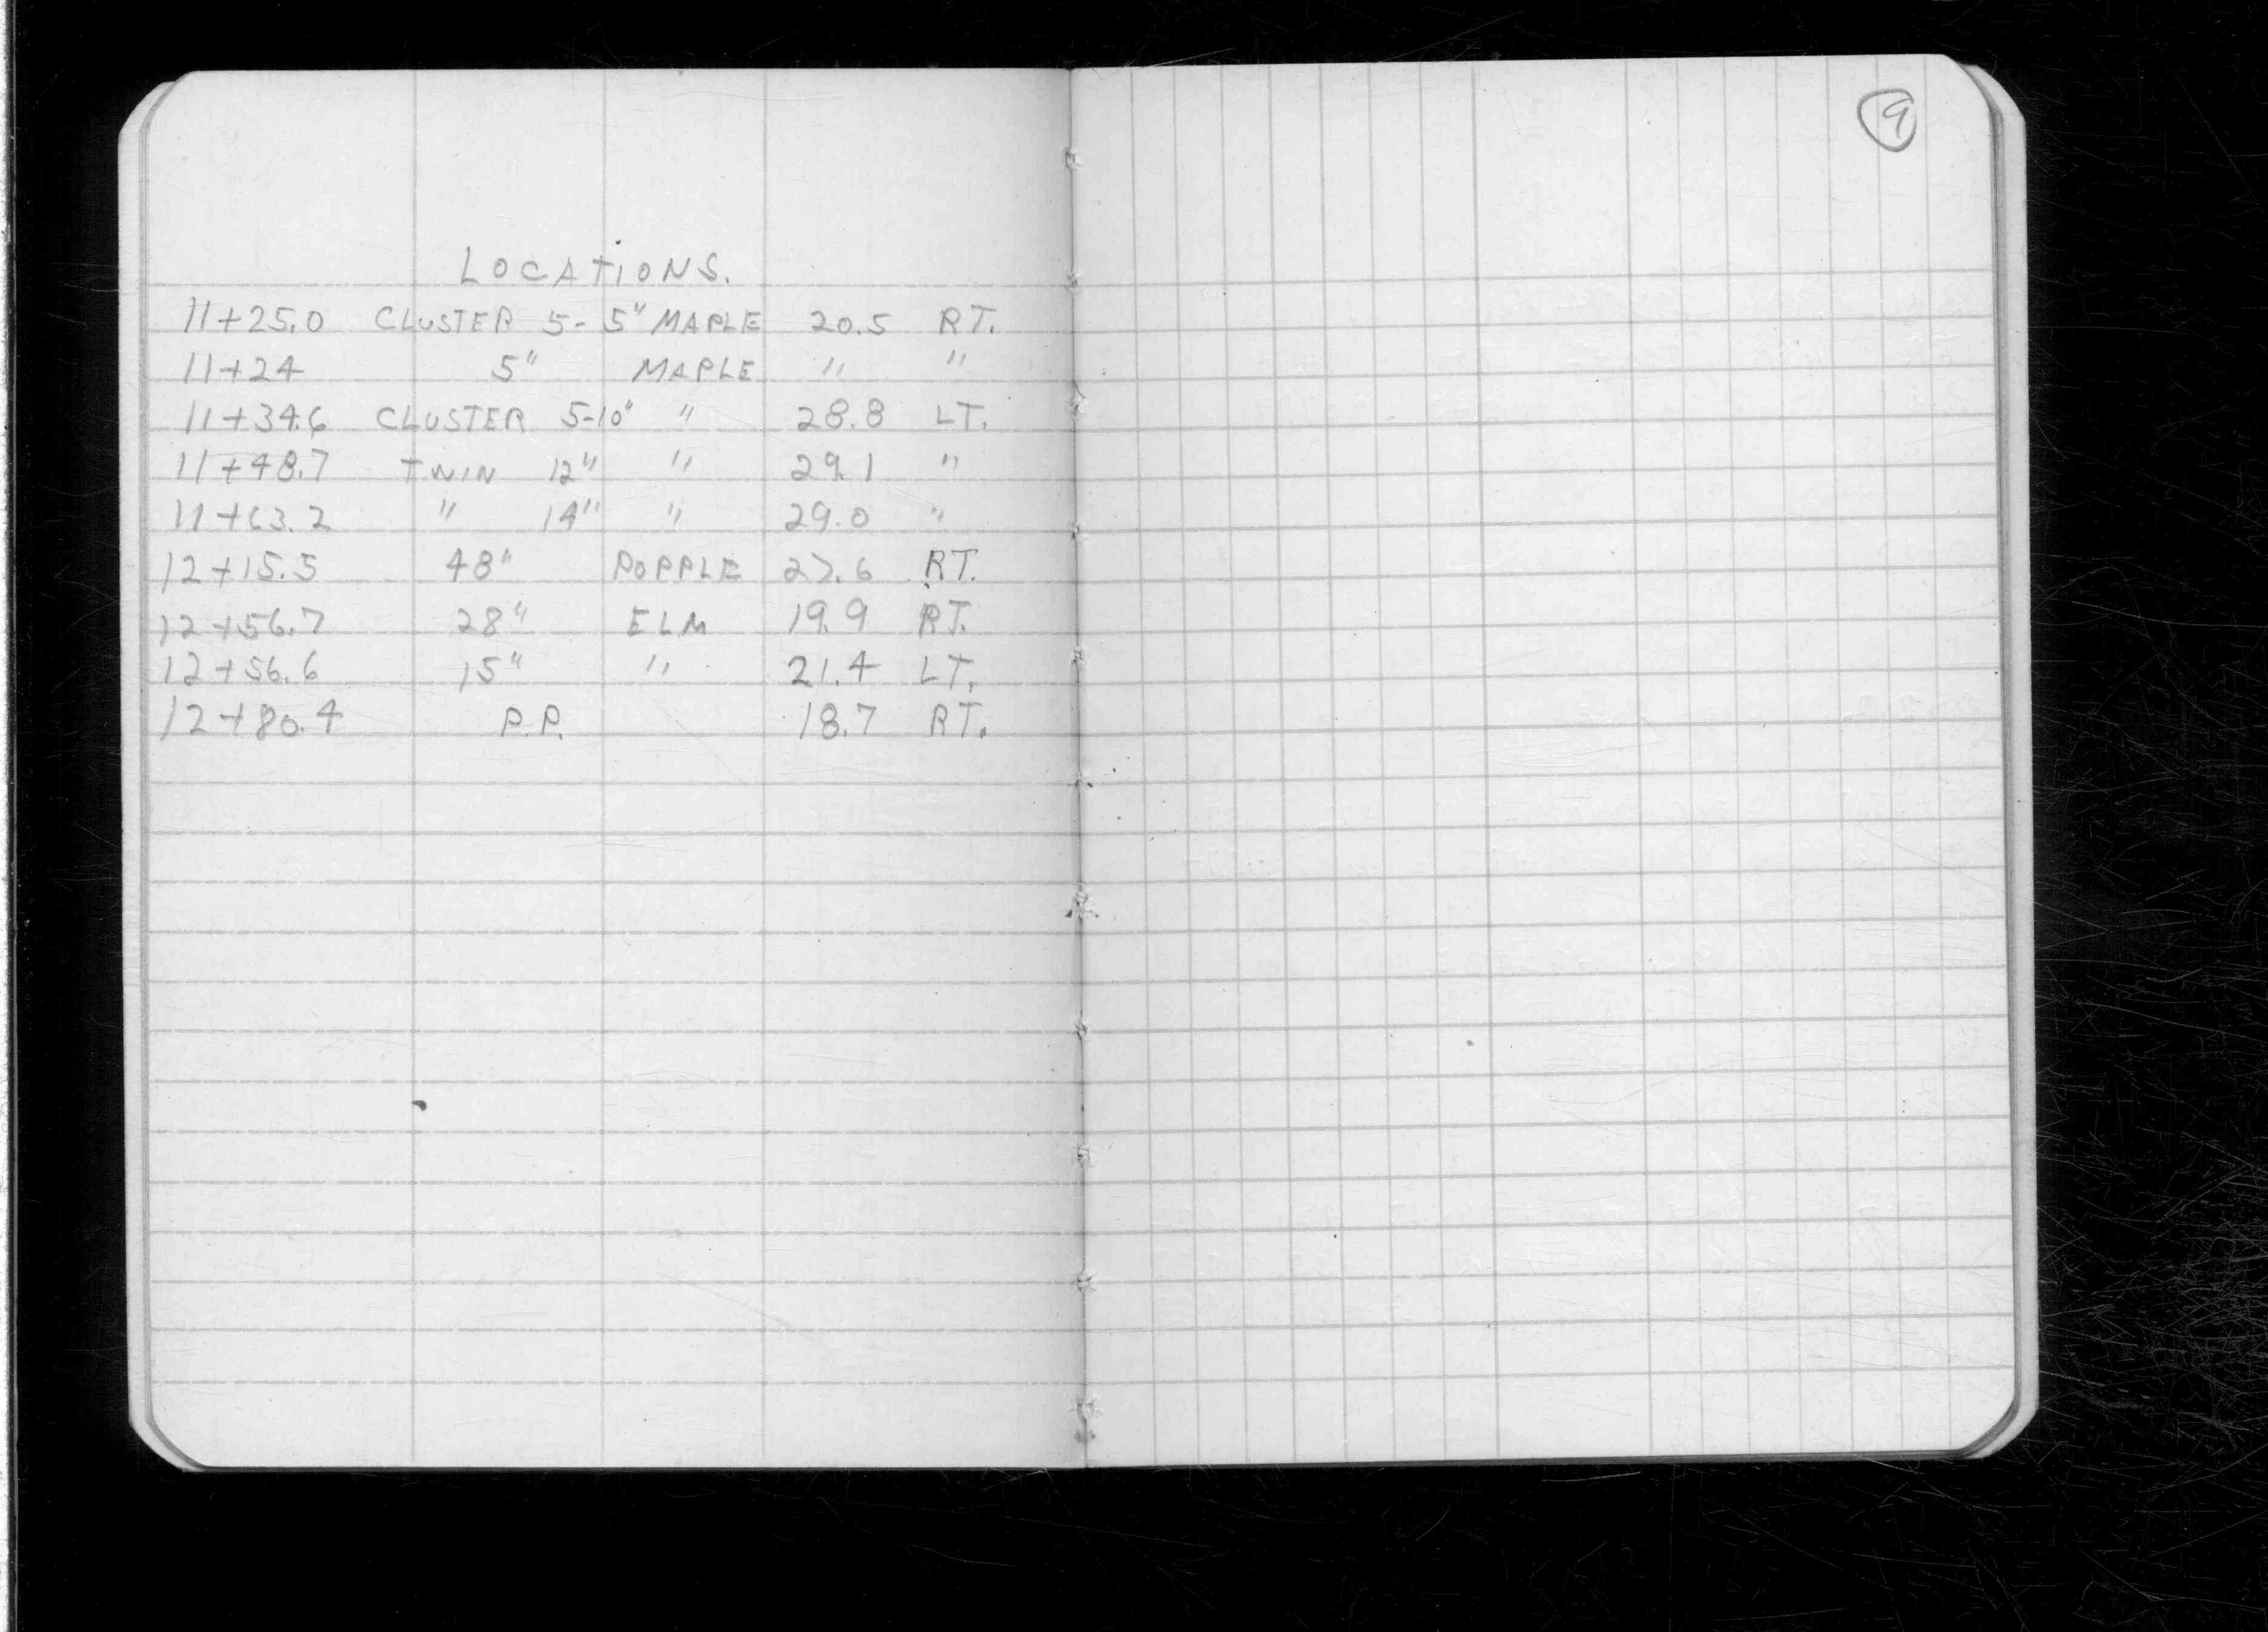 9
LOCATIONS.
11+25.0 CLUSTER 5- 5" MAPLE 20.5 RT.
11+24 5" MAPLE " "
11+34.6 CLUSTER 5-10" " 28.8 LT.
11+48.7 TWIN 12" " 29.1 "
11+63.2 " 14" " 29.0 "
12+15.5 48" POPPLE 27.6 RT.
12+56.7 28" ELM 19.9 RT.
12+56.6 15" " 21.4 LT.
12+80.4 P.P. 18.7 RT.